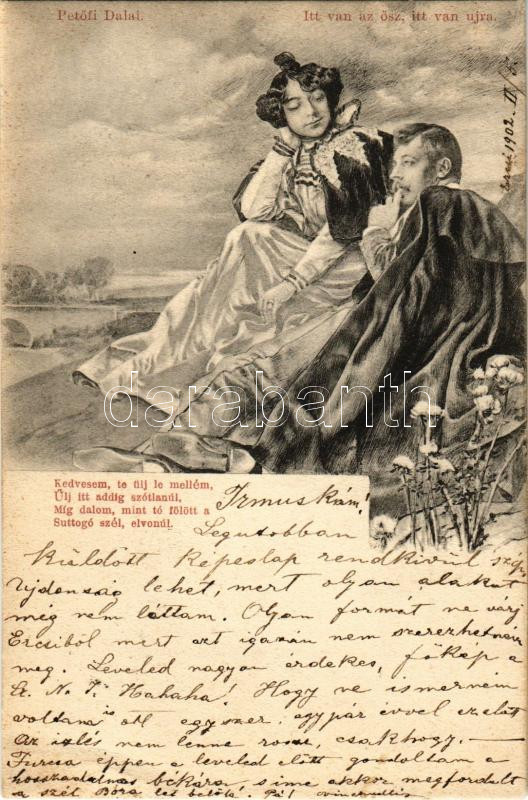 Petőfi Dalai.
Itt van az ősz, itt van ujra.
1902. II/5.
darabanth
Kedvesem, te ülj le mellém,
Ülj itt addig szótlanúl,
Míg dalom, mint tó fölött a
Suttogó szél, elvonúl.
Irmuskám!
Legutobban
küldött képeslap rendkivül
ujdonság lehet, mert olyan alakut
még nem láttam. Olyan formát ne várj
Ercsiből mert azt igazán nem
meg. Leveled nagyon érdekes, főkep a
Hahaha! Hogy ne ismerném
voltam is ott egyszer, egypár évvel ezelőtt
Az izlés nem lenne rossz, csakhogy. —
Furcsa éppen a leveled előtt gondoltam a
hosszadalmas békára s ime akkor megfordult
a szél Bora lett belőle. Pá!